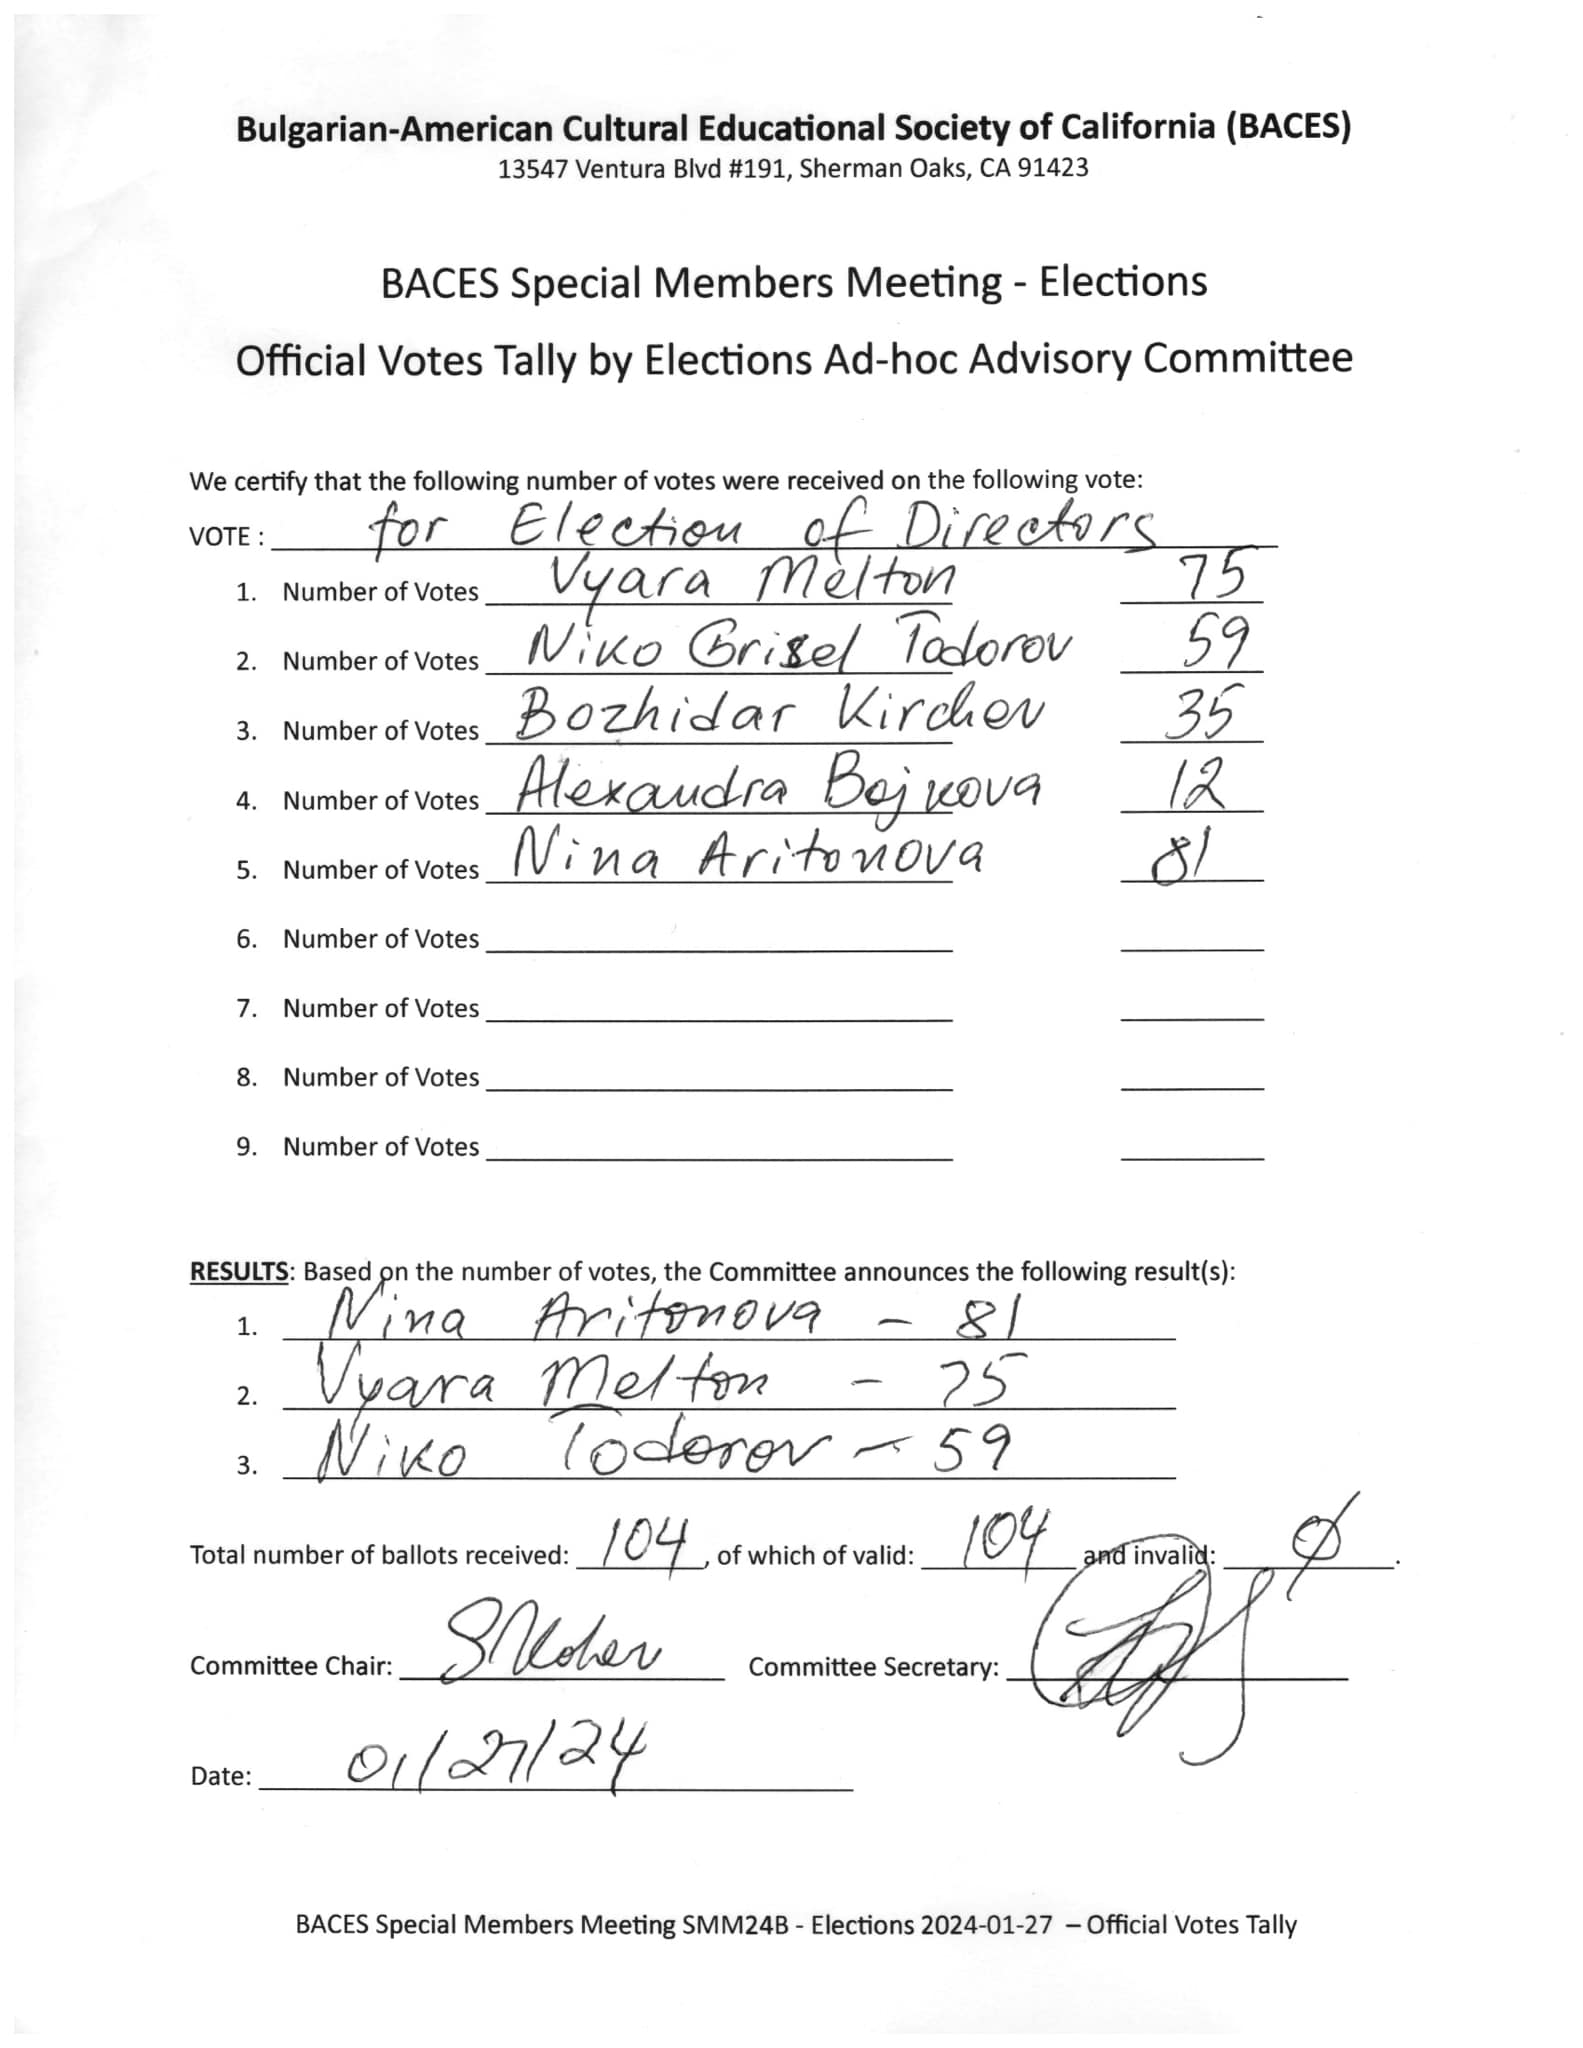 Bulgarian-American Cultural Educational Society of California (BACES)
13547 Ventura Blvd #191, Sherman Oaks, CA 91423
BACES Special Members Meeting - Elections
Official Votes Tally by Elections Ad-hoc Advisory Committee
We certify that the following number of votes were received on the following vote:
VOTE : for Election of Directors
1. Number of Votes Vyara Melton 75
2. Number of Votes Niko Grisel Todorov 59
3. Number of Votes Bozhidar Kirchev 35
4. Number of Votes Alexandra Bojkova 12
5. Number of Votes Nina Aritonova 81
6. Number of Votes
7. Number of Votes
8. Number of Votes
9. Number of Votes
RESULTS: Based on the number of votes, the Committee announces the following result(s):
1. Nina Aritonova - 81
2. Vyara Melton - 75
3. Niko Todorov - 59
Total number of ballots received: 104, of which of valid: 104 and invalid: Ø.
Committee Chair: Committee Secretary:
Date: 01/27/24
BACES Special Members Meeting SMM24B - Elections 2024-01-27 – Official Votes Tally